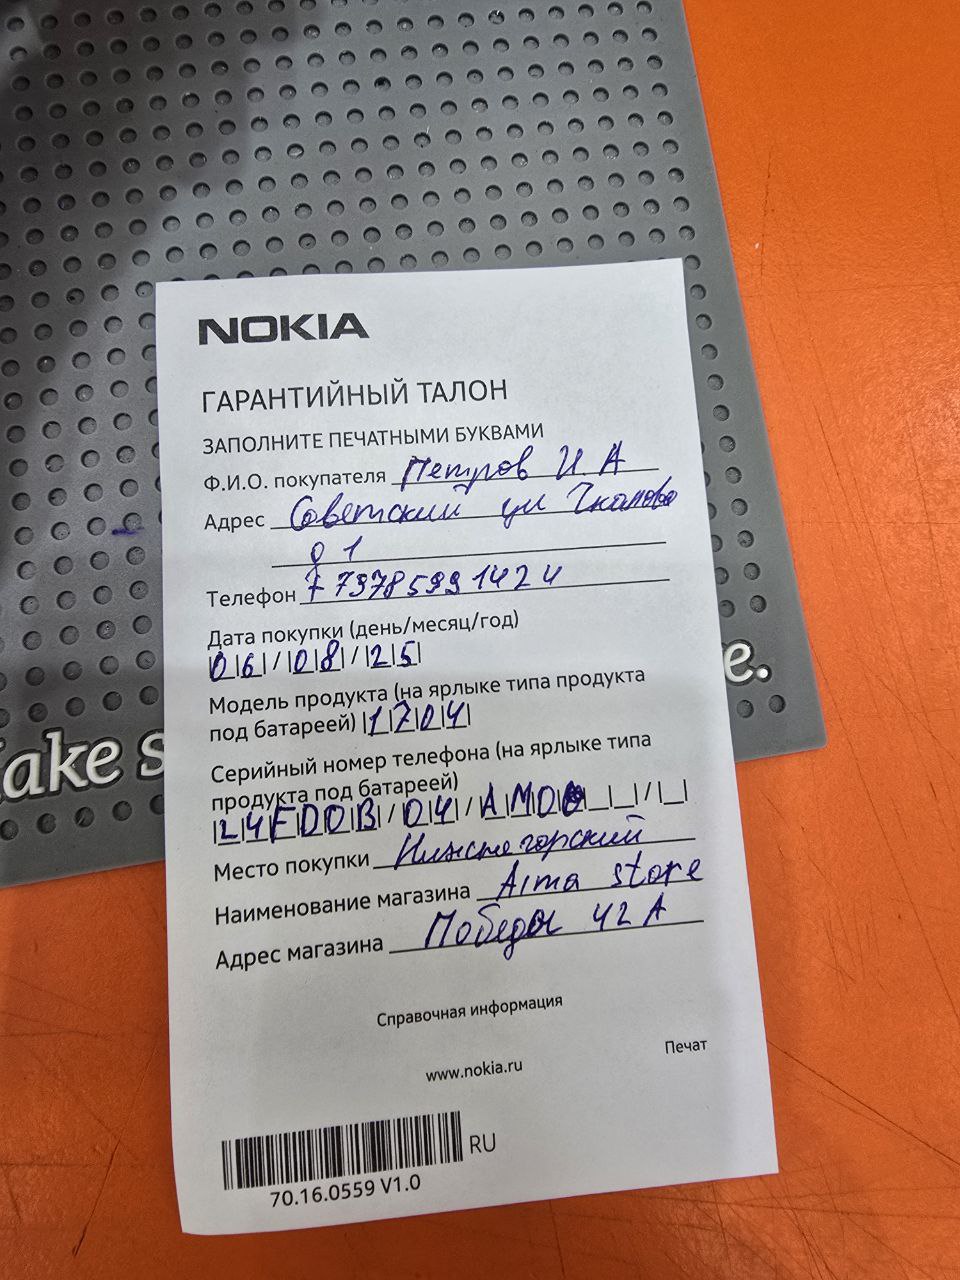 NOKIA
ГАРАНТИЙНЫЙ ТАЛОН
ЗАПОЛНИТЕ ПЕЧАТНЫМИ БУКВАМИ
Ф.И.О. покупателя Петров И А
Адрес Советский ул Чкалова
д 1
Телефон +79785991424
Дата покупки (день/месяц/год)
06/08/25
Модель продукта (на ярлыке типа продукта
под батареей) 1704
Серийный номер телефона (на ярлыке типа
продукта под батареей)
24FD0B/04/AM0
Место покупки Нижнегорский
Наименование магазина store
Адрес магазина Победы 42 А
Справочная информация
Печат
www.nokia.ru
RU
70.16.0559 V1.0
ake s
e.